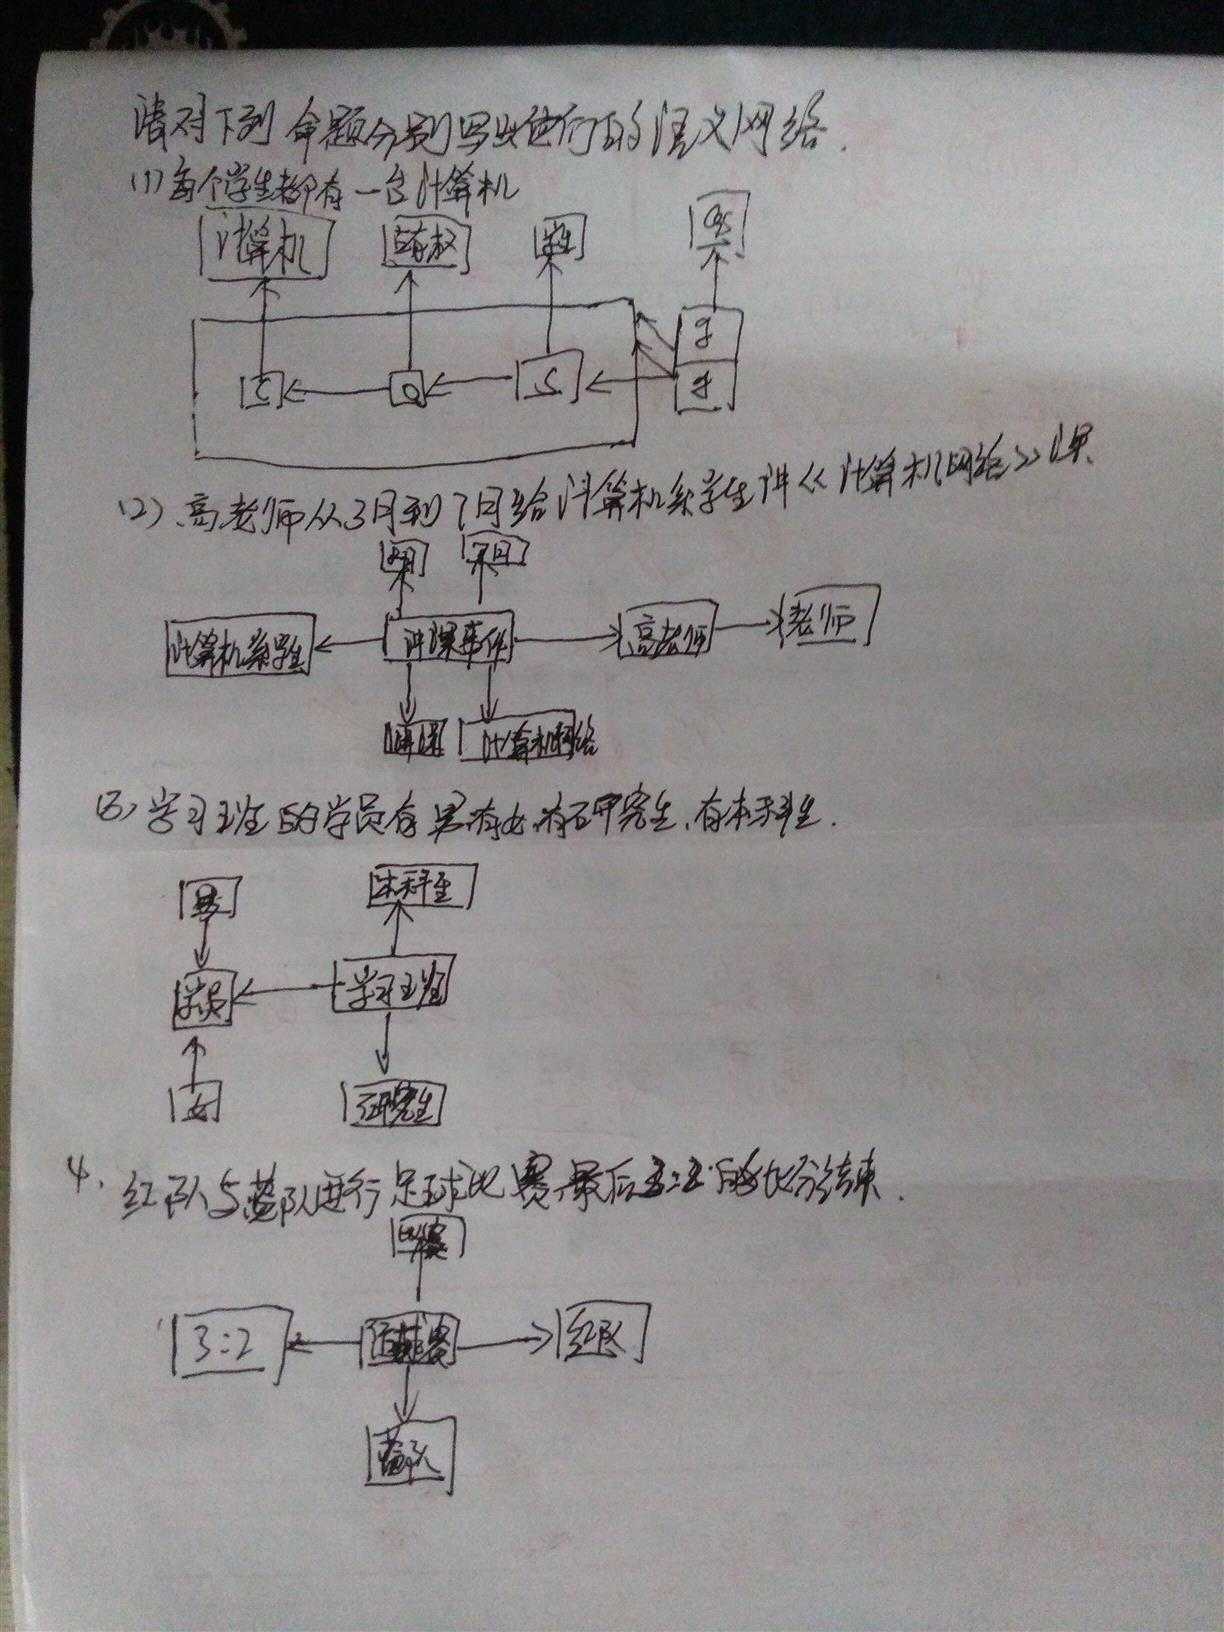 请对下列命题分别写出他们的语义网络.
(1)每个学生都有一台计算机
计算机 占有权 学生 GS
g
C O S
(2)、高老师从3月到7月给计算机系学生讲《计算机网络》课、
3月 7月
计算机系学生 讲课事件 高老师 老师
讲课 计算机网络
(3)、学习班的学员有男有女、有研究生、有本科生.
男 本科生
学员 学习班
女 研究生
4、红队与蓝队进行足球比赛,最后 的比分结束.
比赛
3:2 红队
蓝队